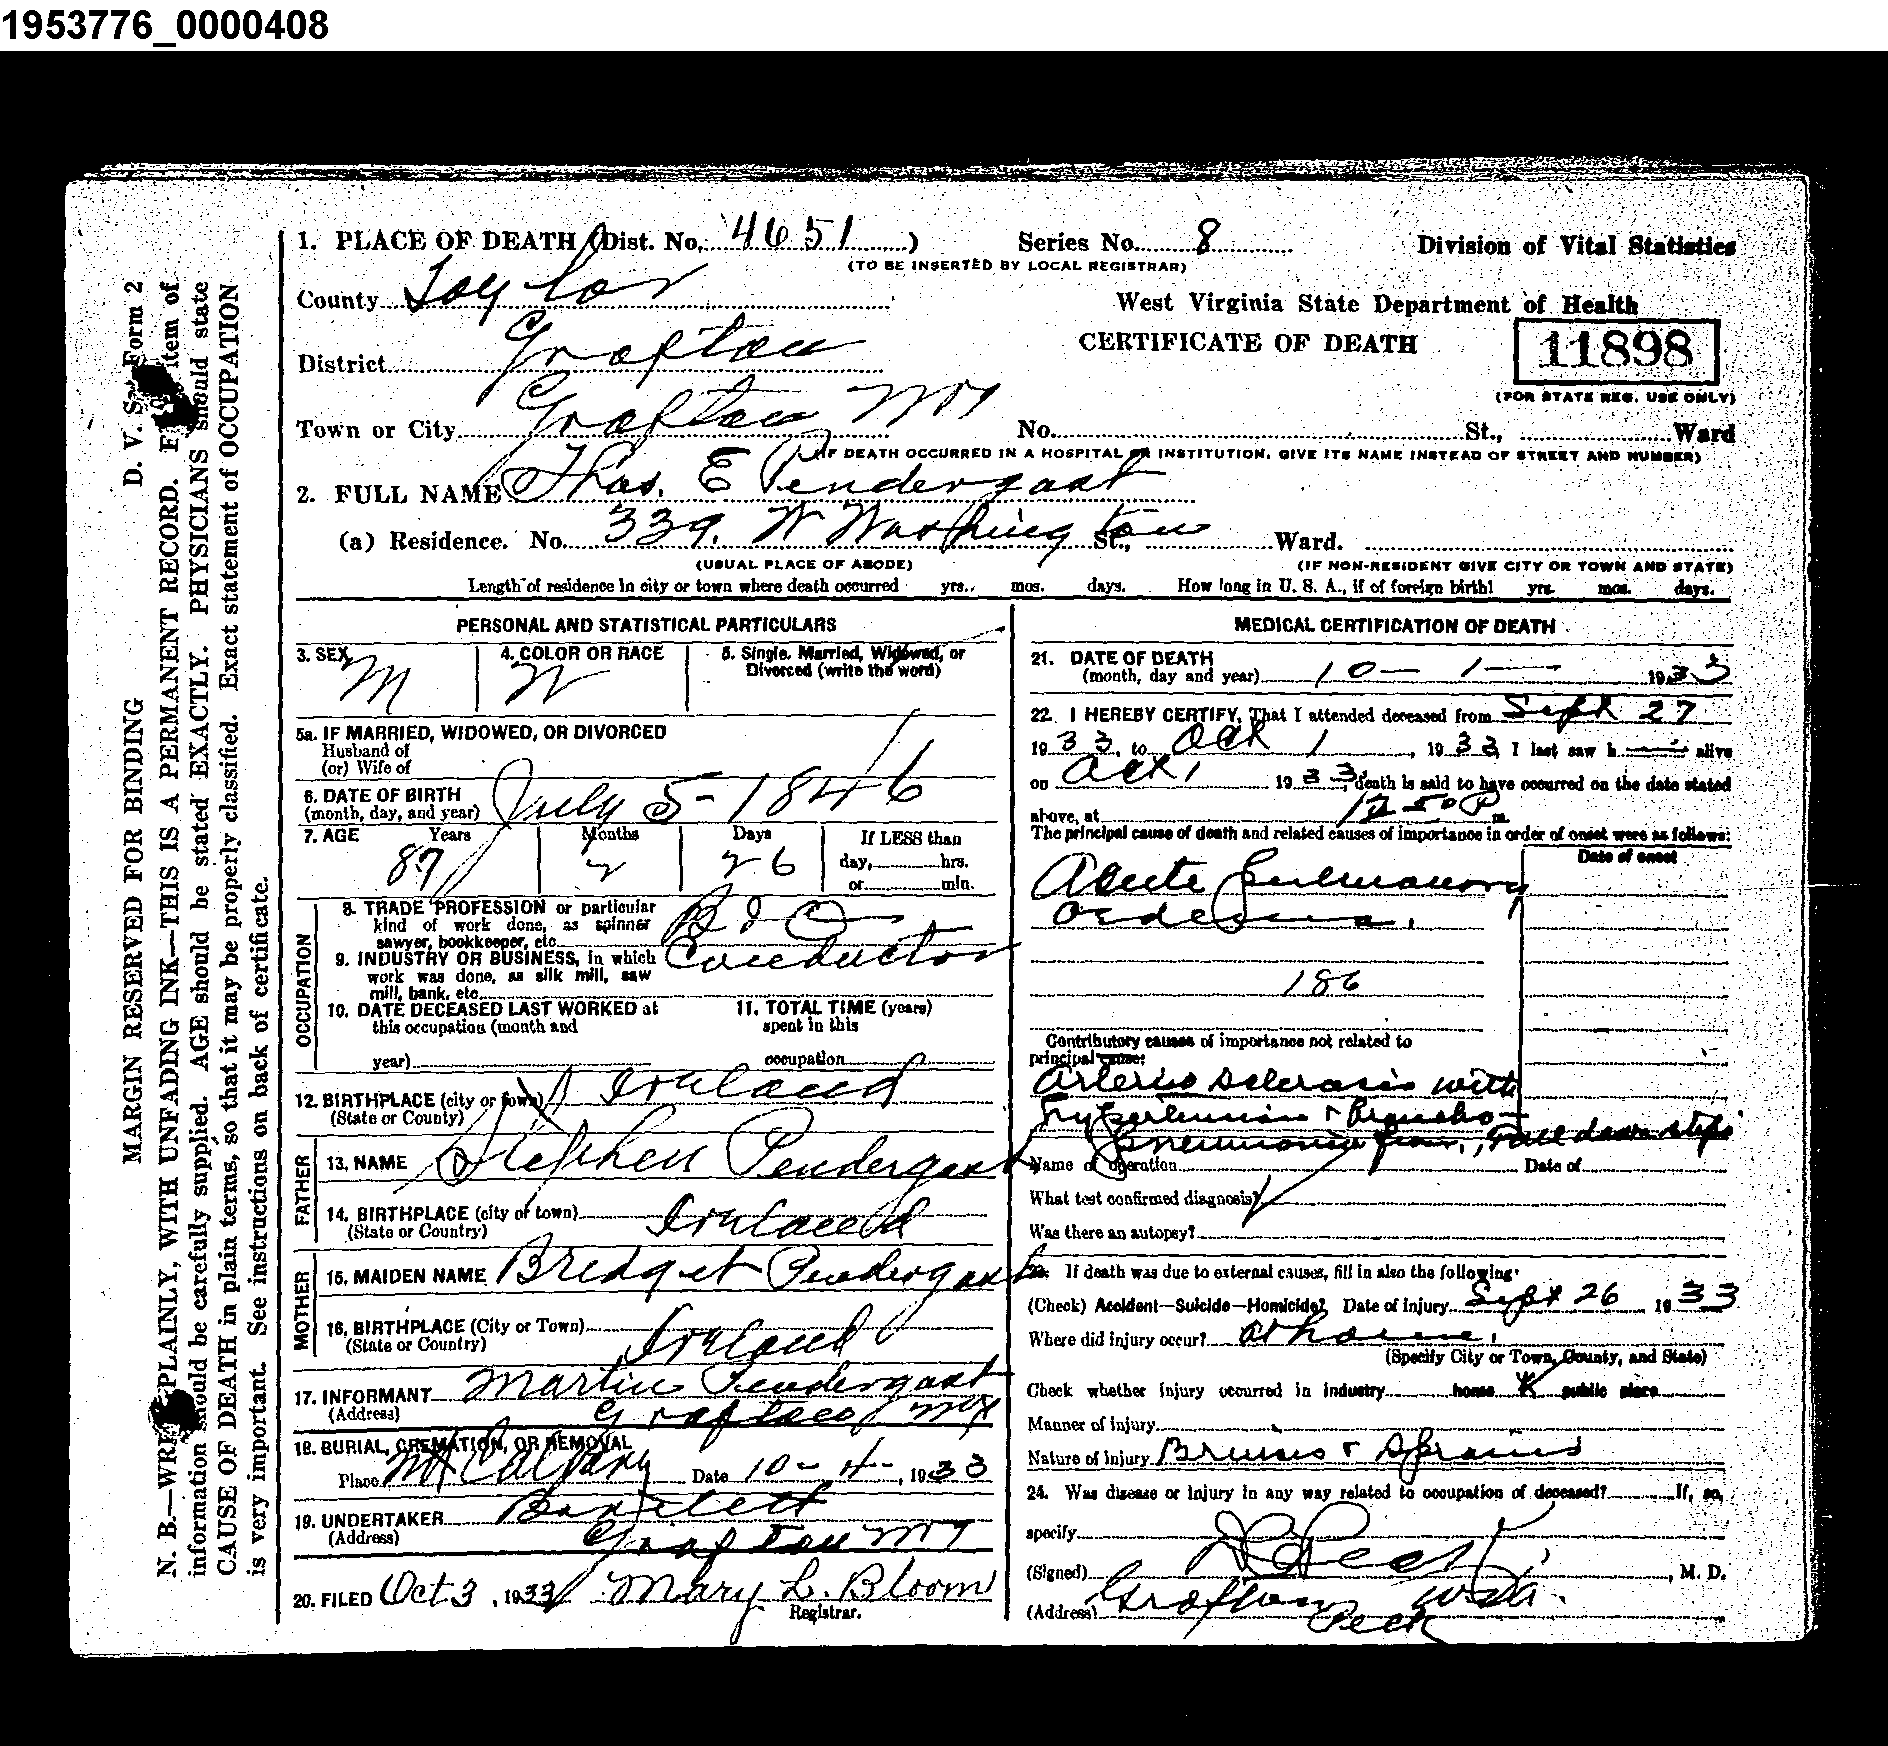 1953776_0000408
1. PLACE OF DEATH (Dist. No. 4651) Series No. 8 Division of Vital Statistics
(TO BE INSERTED BY LOCAL REGISTRAR)
County Taylor
West Virginia State Department of Health
CERTIFICATE OF DEATH
11898
(FOR STATE REG. USE ONLY)
District Grafton
Town or City Grafton No. St., Ward
(IF DEATH OCCURRED IN A HOSPITAL OR INSTITUTION, GIVE ITS NAME INSTEAD OF STREET AND NUMBER)
2. FULL NAME Thos. E Pendergast
(a) Residence. No. 339. W Washington St., Ward.
(USUAL PLACE OF ABODE) (IF NON-RESIDENT GIVE CITY OR TOWN AND STATE)
Length of residence in city or town where death occurred yrs. mos. days. How long in U. S. A., if of foreign birth? yrs. mos. days.
D. V. S. Form 2
MARGIN RESERVED FOR BINDING
N. B.—WRITE PLAINLY, WITH UNFADING INK—THIS IS A PERMANENT RECORD. Every item of
information should be carefully supplied. AGE should be stated EXACTLY. PHYSICIANS should state
CAUSE OF DEATH in plain terms, so that it may be properly classified. Exact statement of OCCUPATION
is very important. See instructions on back of certificate.
PERSONAL AND STATISTICAL PARTICULARS
3. SEX M
4. COLOR OR RACE W
5. Single, Married, Widowed, or
Divorced (write the word)
5a. IF MARRIED, WIDOWED, OR DIVORCED
Husband of
(or) Wife of
6. DATE OF BIRTH
(month, day, and year) July 5 - 1846
7. AGE Years Months Days If LESS than
87 2 26 day, hrs.
or min.
OCCUPATION
8. TRADE PROFESSION or particular
kind of work done, as spinner
sawyer, bookkeeper, etc. B & O
9. INDUSTRY OR BUSINESS, in which Conductor
work was done, as silk mill, saw
mill, bank, etc.
10. DATE DECEASED LAST WORKED at
this occupation (month and
year)
11. TOTAL TIME (years)
spent in this
occupation
12. BIRTHPLACE (city or town) Ireland
(State or County)
FATHER
13. NAME Stephen Pendergast
14. BIRTHPLACE (city or town) Ireland
(State or Country)
MOTHER
15. MAIDEN NAME Bredget Pendergast
16. BIRTHPLACE (City or Town) Ireland
(State or Country)
17. INFORMANT Martin Pendergast
(Address) Grafton
18. BURIAL, CREMATION, OR REMOVAL
Place Mt Calvary Date 10 - 4 - , 1933
19. UNDERTAKER Bartlett
(Address) Grafton
20. FILED Oct 3, 1933 Mary L. Bloom
Registrar.
MEDICAL CERTIFICATION OF DEATH
21. DATE OF DEATH
(month, day and year) 10 - 1 - 1933
22. I HEREBY CERTIFY, That I attended deceased from Sept 27
1933, to Oct 1, 1933, I last saw h alive
on Oct 1 1933, death is said to have occurred on the date stated
above, at 12 50 P m.
The principal cause of death and related causes of importance in order of onset were as follows:
Date of onset
Acute Pulmonary
Oedema.
186
Contributory causes of importance not related to
principal cause:
Arterio Sclerosis with
Hypertension & Broncho-
Pneumonia from, Fall down steps
Name of operation Date of
What test confirmed diagnosis?
Was there an autopsy?
23. If death was due to external causes, fill in also the following:
(Check) Accident—Suicide—Homicide? Date of Injury Sept 26 1933
Where did injury occur? at home.
(Specify City or Town, County, and State)
Check whether injury occurred in industry home public place
Manner of injury
Nature of injury Bruises & Sprains
24. Was disease or injury in any way related to occupation of deceased? If, so,
specify
(Signed) Peck, M. D.
(Address) Grafton W. Va.
Peck